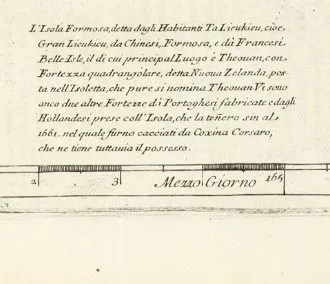 L'Isola Formosa, detta dagli Habitanti Ta Lieukieu, cioe,
Gran Lieukieu, da Chinesi, Formosa, e dà Francesi
Belle Isle, il di cui principal Luogo è Theouan, con
Fortezza quadrangolare, detta Nuoua Zelanda, pos-
ta nell'Isoletta, che pure si nomina Theouan Vi sono
anco due altre Fortezze di Portoghesi fabricate e dagli
Hollandesi prese coll'Isola, che la teñero sin al
1661. nel quale furno cacciati da Coxina Corsaro,
che ne tiene tuttauia il possesso.
2 3 Mezzo Giorno 165